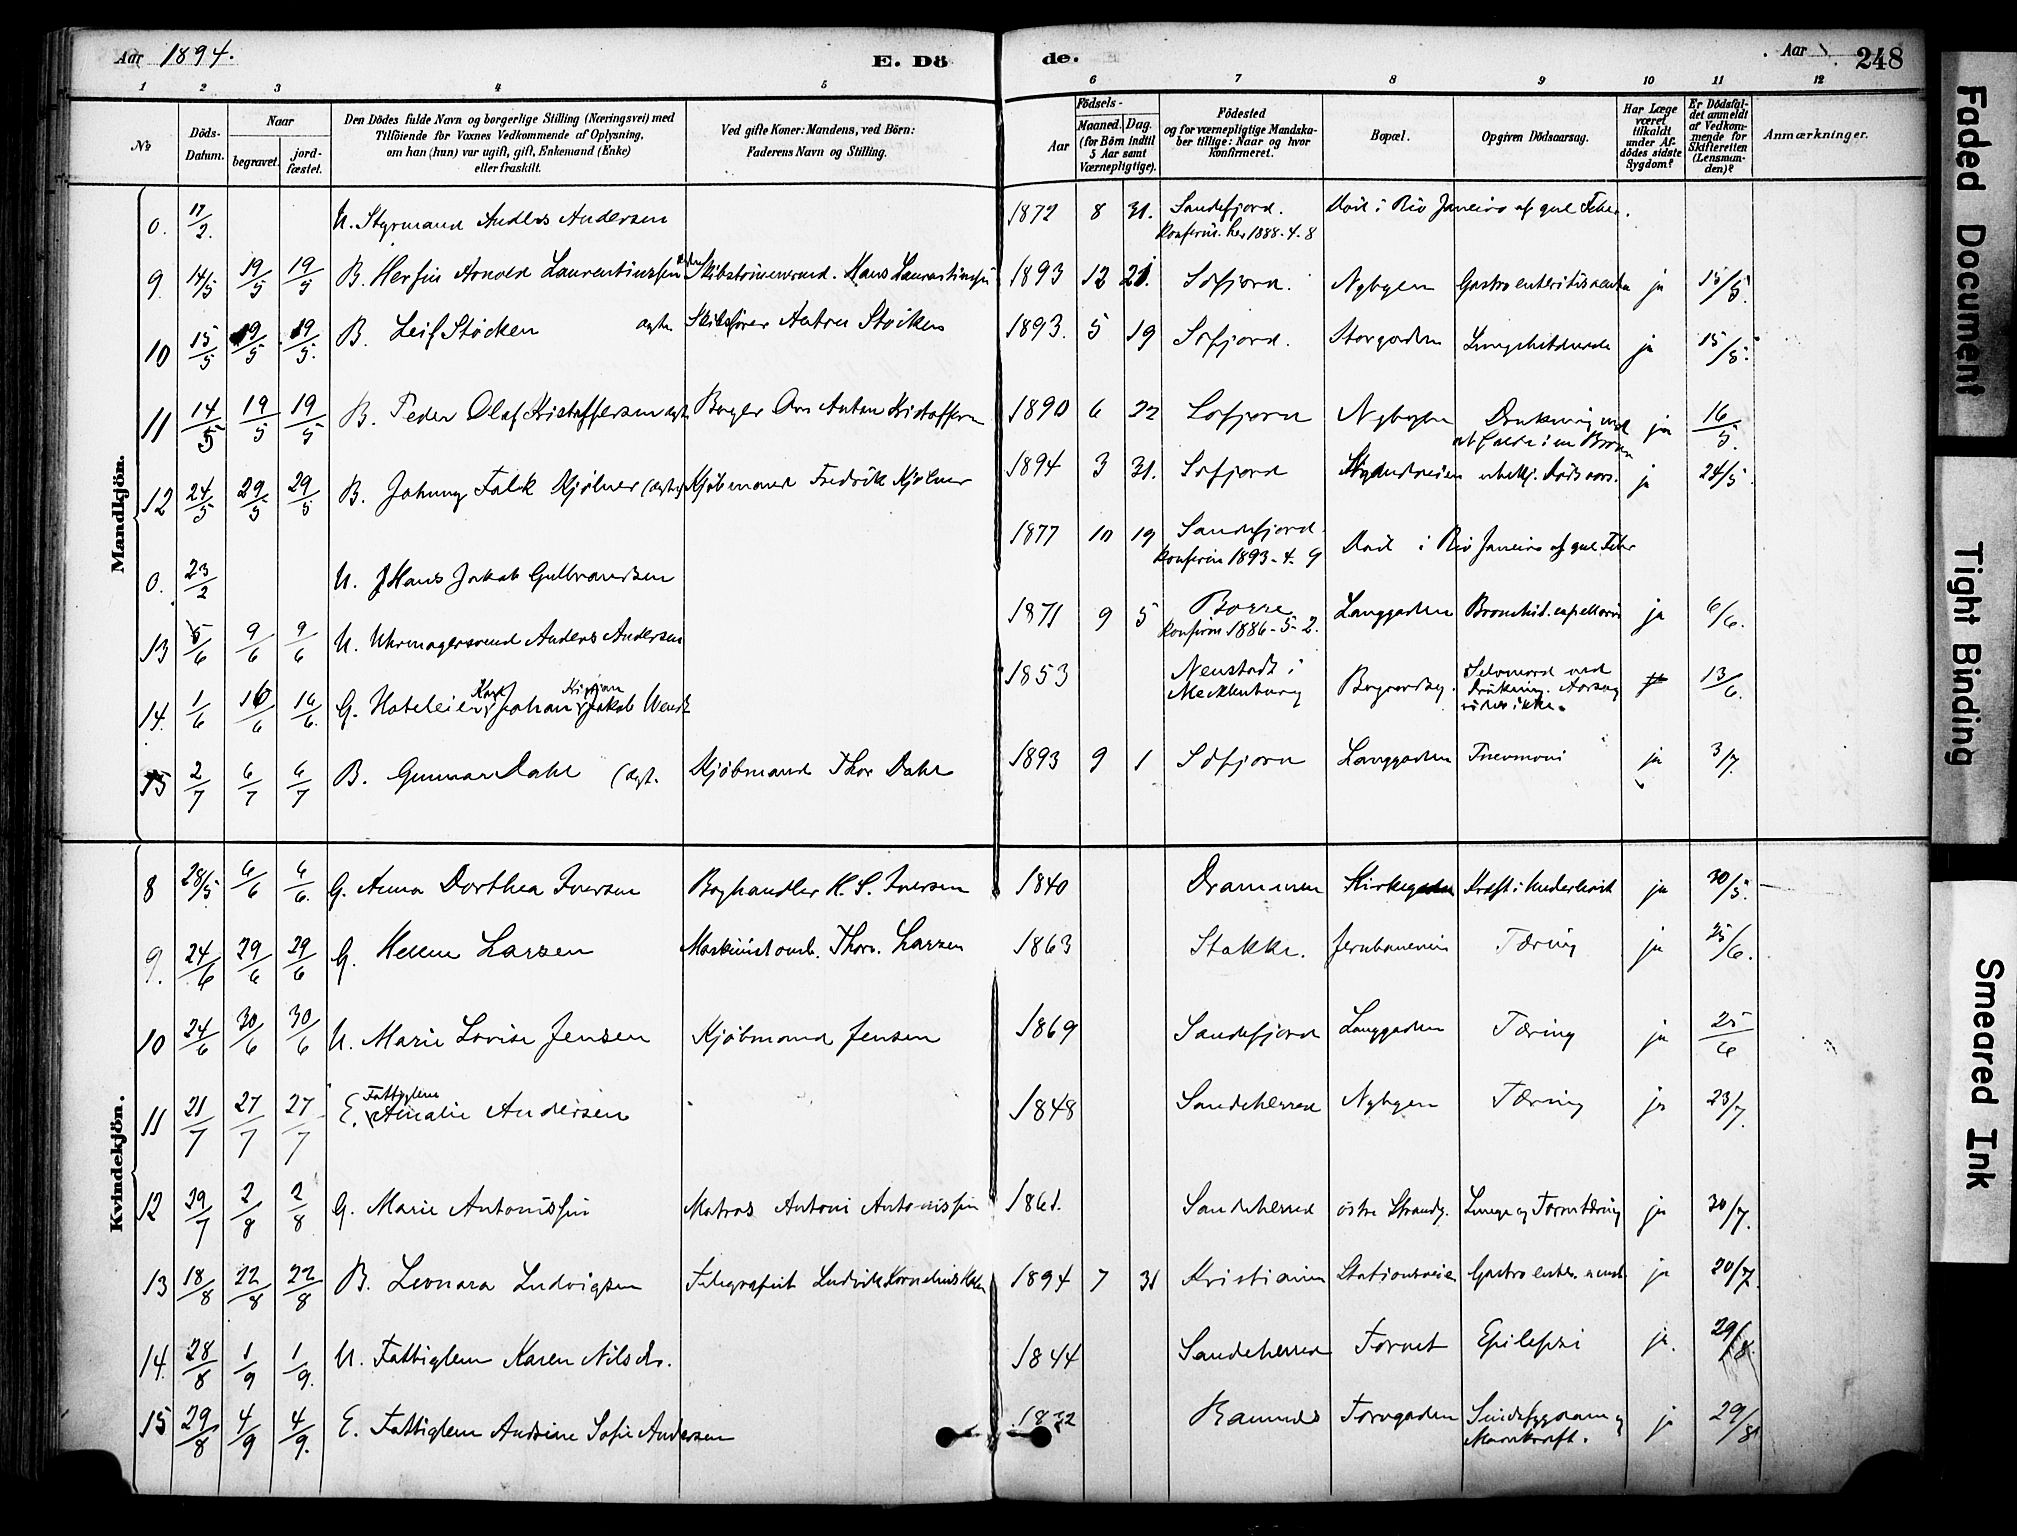 Aar 1894.
E. Dö
de.
Aar
248
1 2 3 4 5 6 7 8 9 10 11 12
No
Döds-Datum.
Naar
begravet.
jord-fæstet.
Den Dödes fulde Navn og borgerlige Stilling (Næringsvei) med
Tilföiende for Voxnes Vedkommende af Oplysning,
om han (hun) var ugift, gift, Enkemand (Enke)
eller fraskilt.
Ved gifte Koner: Mandens, ved Börn:
Faderens Navn og Stilling.
Födsels-
Aar
Maaned.
Dag.
(for Börn indtil
5 Aar samt
Værnepligtige).
Födested
og for værnepligtige Mandska-
ber tillige: Naar og hvor
konfirmeret.
Bopæl.
Opgiven Dödsaarsag.
Har Læge
været
tilkaldt
under Af-
dödes sidste
Sygdom?
Er Dödsfal-
det anmeldt
af Vedkom-
mende for
Skifteretten
(Lensman-
den)?
Anmærkninger.
Mandkjön.
0. 17/2. U. Styrmand Anders Andersen 1872 8 31. Sandefjord. Konfirm. her 1888-4-8 Död i Rio Janeiro af gul Feber.
9. 14/5 19/5 19/5 B. Laurentiussen Hans Laurentiussen 1893 12 21. Sdfjord. Nybyen Gastroenteritis ja 15/5.
10 15/5 19/5 19/5. B. Leif Stöcken ægte Skibsförer Anton Stöcken 1893. 5 19 Sdfjord. Storgaden ja 15/5.
11 14/5 19/5 19/5 B. Peder Olaf Kristoffersen ægte Anton Kristoffersen 1890 6 22 Sdfjord Nybyen Drukning ved at falde i en Brönn ja 16/5.
12 24/5 29/5 29/5 B. Johnny Falk Kjölner (ægte) Kjöbmand Fredrik Kjölner 1894 3 31. Sdfjord ubekj. Dödsaars. ja 24/5.
0. 23/2 U. Hans Jakob Gulbrandsen 1877 10 19 Sandefjord. Konfirm 1893-4-9 Död i Rio Janeiro af gul Feber
13 5/6 9/6 9/6 U. Uhrmagersvend Anders Andersen 1871 9 5 Borre Konfirm 1886-5-2. Langgaden ja 6/6.
14. 1/6 16/6 16/6. G. Hoteleier Karl Johan Kristian Jakob Wendt 1853 Neustadt i Mecklenburg Selvmord ved Drukning. Aarsag vides ikke. 13/6.
15 2/7 6/7 6/7 B. Gunnar Dahl (ægt. Kjöbmand Thor Dahl 1893 9 1 Sdfjord Langgaden Pnevmoni ja 3/7.
Kvindekjön.
8 28/5. 6/6 6/6. G. Anna Dorthea Iversen Boghandler H. S. Iversen 1840 Drammen Kirkegaden Kræft i Underlivet ja 30/5.
9. 24/6 29/6 29/6 G. Helene Larsen Thorv. Larsen 1863 Stokke. Jernbaneveien Tæring ja 25/6.
10 24/6 30/6 30/6 U. Marie Lovise Jensen Kjöbmand Jensen 1869 Sandefjord Langgaden Tæring ja 25/6
11 21/7 27/7 27/7 E. Fattiglem Amalie Andersen 1848 Sandeherred Nybyen Tæring ja 23/7.
12 29/7 2/8 2/8 G. Marie Antonissen Matros Antoni Antonissen 1861. Sandeherred östre Strandg. Lunge og Tarmtæring ja 30/7.
13 18/8 22/8 22/8 B. Leonora Ludvigsen Telegrafist Ludvik Kornelius 1894 7 31 Kristiania Stationsveien Gastroenter. ja 20/7.
14. 28/8 1/9 1/9. U. Fattiglem Karen Nilsdr. 1844 Sandeherred Torvet Epilepsi ja. 29/8.
15 29/8 4/9 4/9. E. Fattiglem Andrine Sofie Andersen 1832 Ramnes Torvgaden Sindssygdom og Mavekræft. ja 29/8
Faded Document
Tight Binding
Smeared Ink